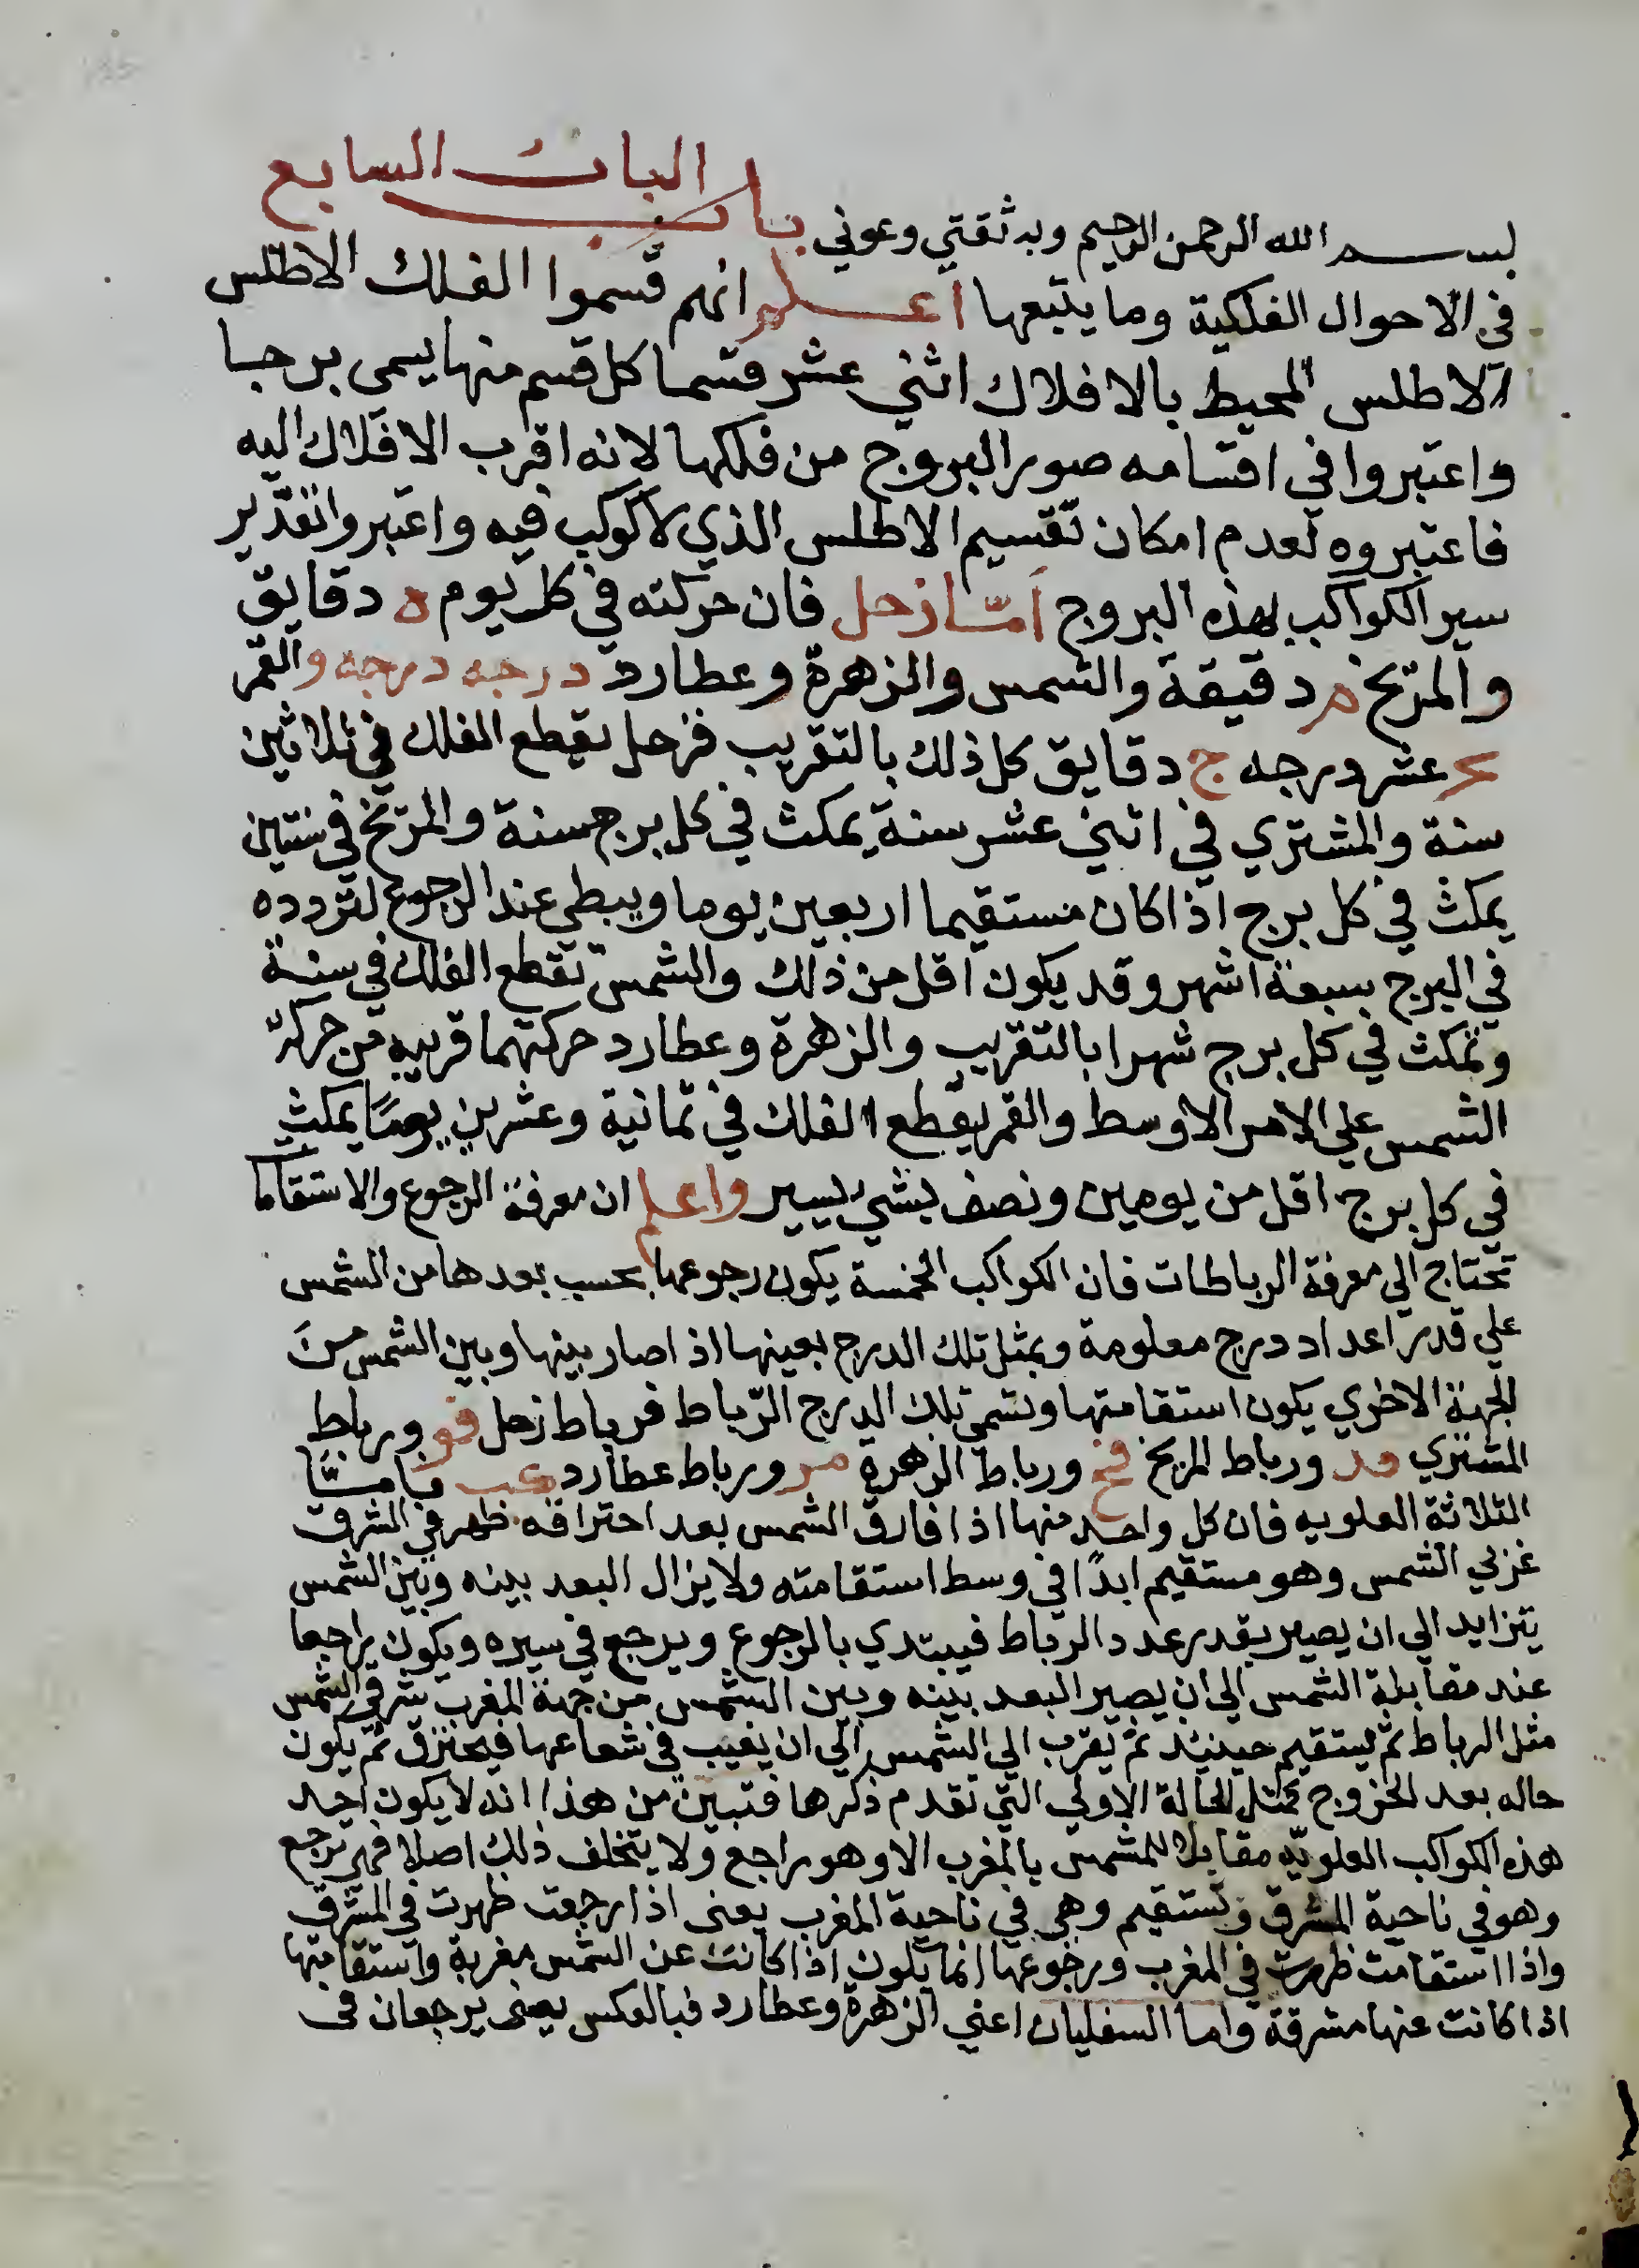 الباب السابع
بسم الله الرحمن الرحيم وبه ثقتي وعوني باب
في الاحوال الفلكية وما يتبعها اعلم انهم قسموا الفلك الاطلس
الاطلس المحيط بالافلاك اثني عشر قسما كل قسم منها يسمى برجا
واعتبروا في اقسامه صور البروج من فلكها لانه اقرب الافلاك اليه
فاعتبروه لعدم امكان تقسيم الاطلس الذي لاكوكب فيه واعتبروا تقدير
سير الكواكب بهذه البروج امّا زحل فان حركته في كل يوم ه دقايق
والمرّيخ م دقيقة والشمس والزهرة وعطارد درجه درجه والقمر
عشر درجه ج دقايق كل ذلك بالتقريب فزحل يقطع الفلك في ثلاثين
سنة والمشتري في اثني عشر سنة يمكث في كل برج سنة والمرّيخ في سنتين
يمكث في كل برج اذا كان مستقيما اربعين يوما ويبطي عند الرجوع لتردده
في البرج سبعة اشهر وقد يكون اقل من ذلك والشمس تقطع الفلك في سنة
وتمكث في كل برج شهرا بالتقريب والزهرة وعطارد حركتهما قريبه من حركة
الشمس علي الامر الاوسط والقمر يقطع الفلك في ثمانية وعشرين يومًا يمكث
في كل برج اقل من يومين ونصف بشيء يسير واعلم ان معرفة الرجوع والاستقاما
تحتاج الي معرفة الرباطات فان الكواكب الخمسة يكون رجوعها بحسب بعدها من الشمس
علي قدر اعداد درج معلومة وبمثل تلك الدرج بعينها اذا صار بينها وبين الشمس من
الجهة الاخري يكون استقامتها وتسمي تلك الدرج الرّباط فرباط زحل قو ورباط
المشتري قد ورباط المريخ قح ورباط الزهرة مر ورباط عطارد كب فامّا
الثلاثة العلويه فان كل واحد منها اذا فارق الشمس بعد احتراقه ظهر في المشرق
غربي الشمس وهو مستقيم ابدًا في وسط استقامته ولا يزال البعد بينه وبين الشمس
يتزايد الي ان يصير بقدر عدد الرباط فيبتدي بالرجوع ويرجع في سيره ويكون راجعا
عند مقابلة الشمس الي ان يصير البعد بينه وبين الشمس من جهة المغرب شرقي الشمس
مثل الرباط ثم يستقيم حينئذ ثم يقرب الي الشمس الي ان يغيب في شعاعها فيحترق ثم يكون
حاله بعد الخروج كمثل الحالة الاولي التي تقدم ذكرها فتبين من هذا انه لا يكون احد
هذه الكواكب العلويّه مقابلا للشمس بالمغرب الا وهو راجع ولا يتخلف ذلك اصلا فهي ترجع
وهو في ناحية المشرق وتستقيم وهي في ناحية المغرب يعنى اذا رجعت ظهرت في المشرق
واذا استقامت ظهرت في المغرب ورجوعها انما يكون اذا كانت عن الشمس مغربة واستقامتها
اذا كانت عنها مشرقة واما السفليان اعني الزهرة وعطارد فبالعكس يعنى يرجعان في